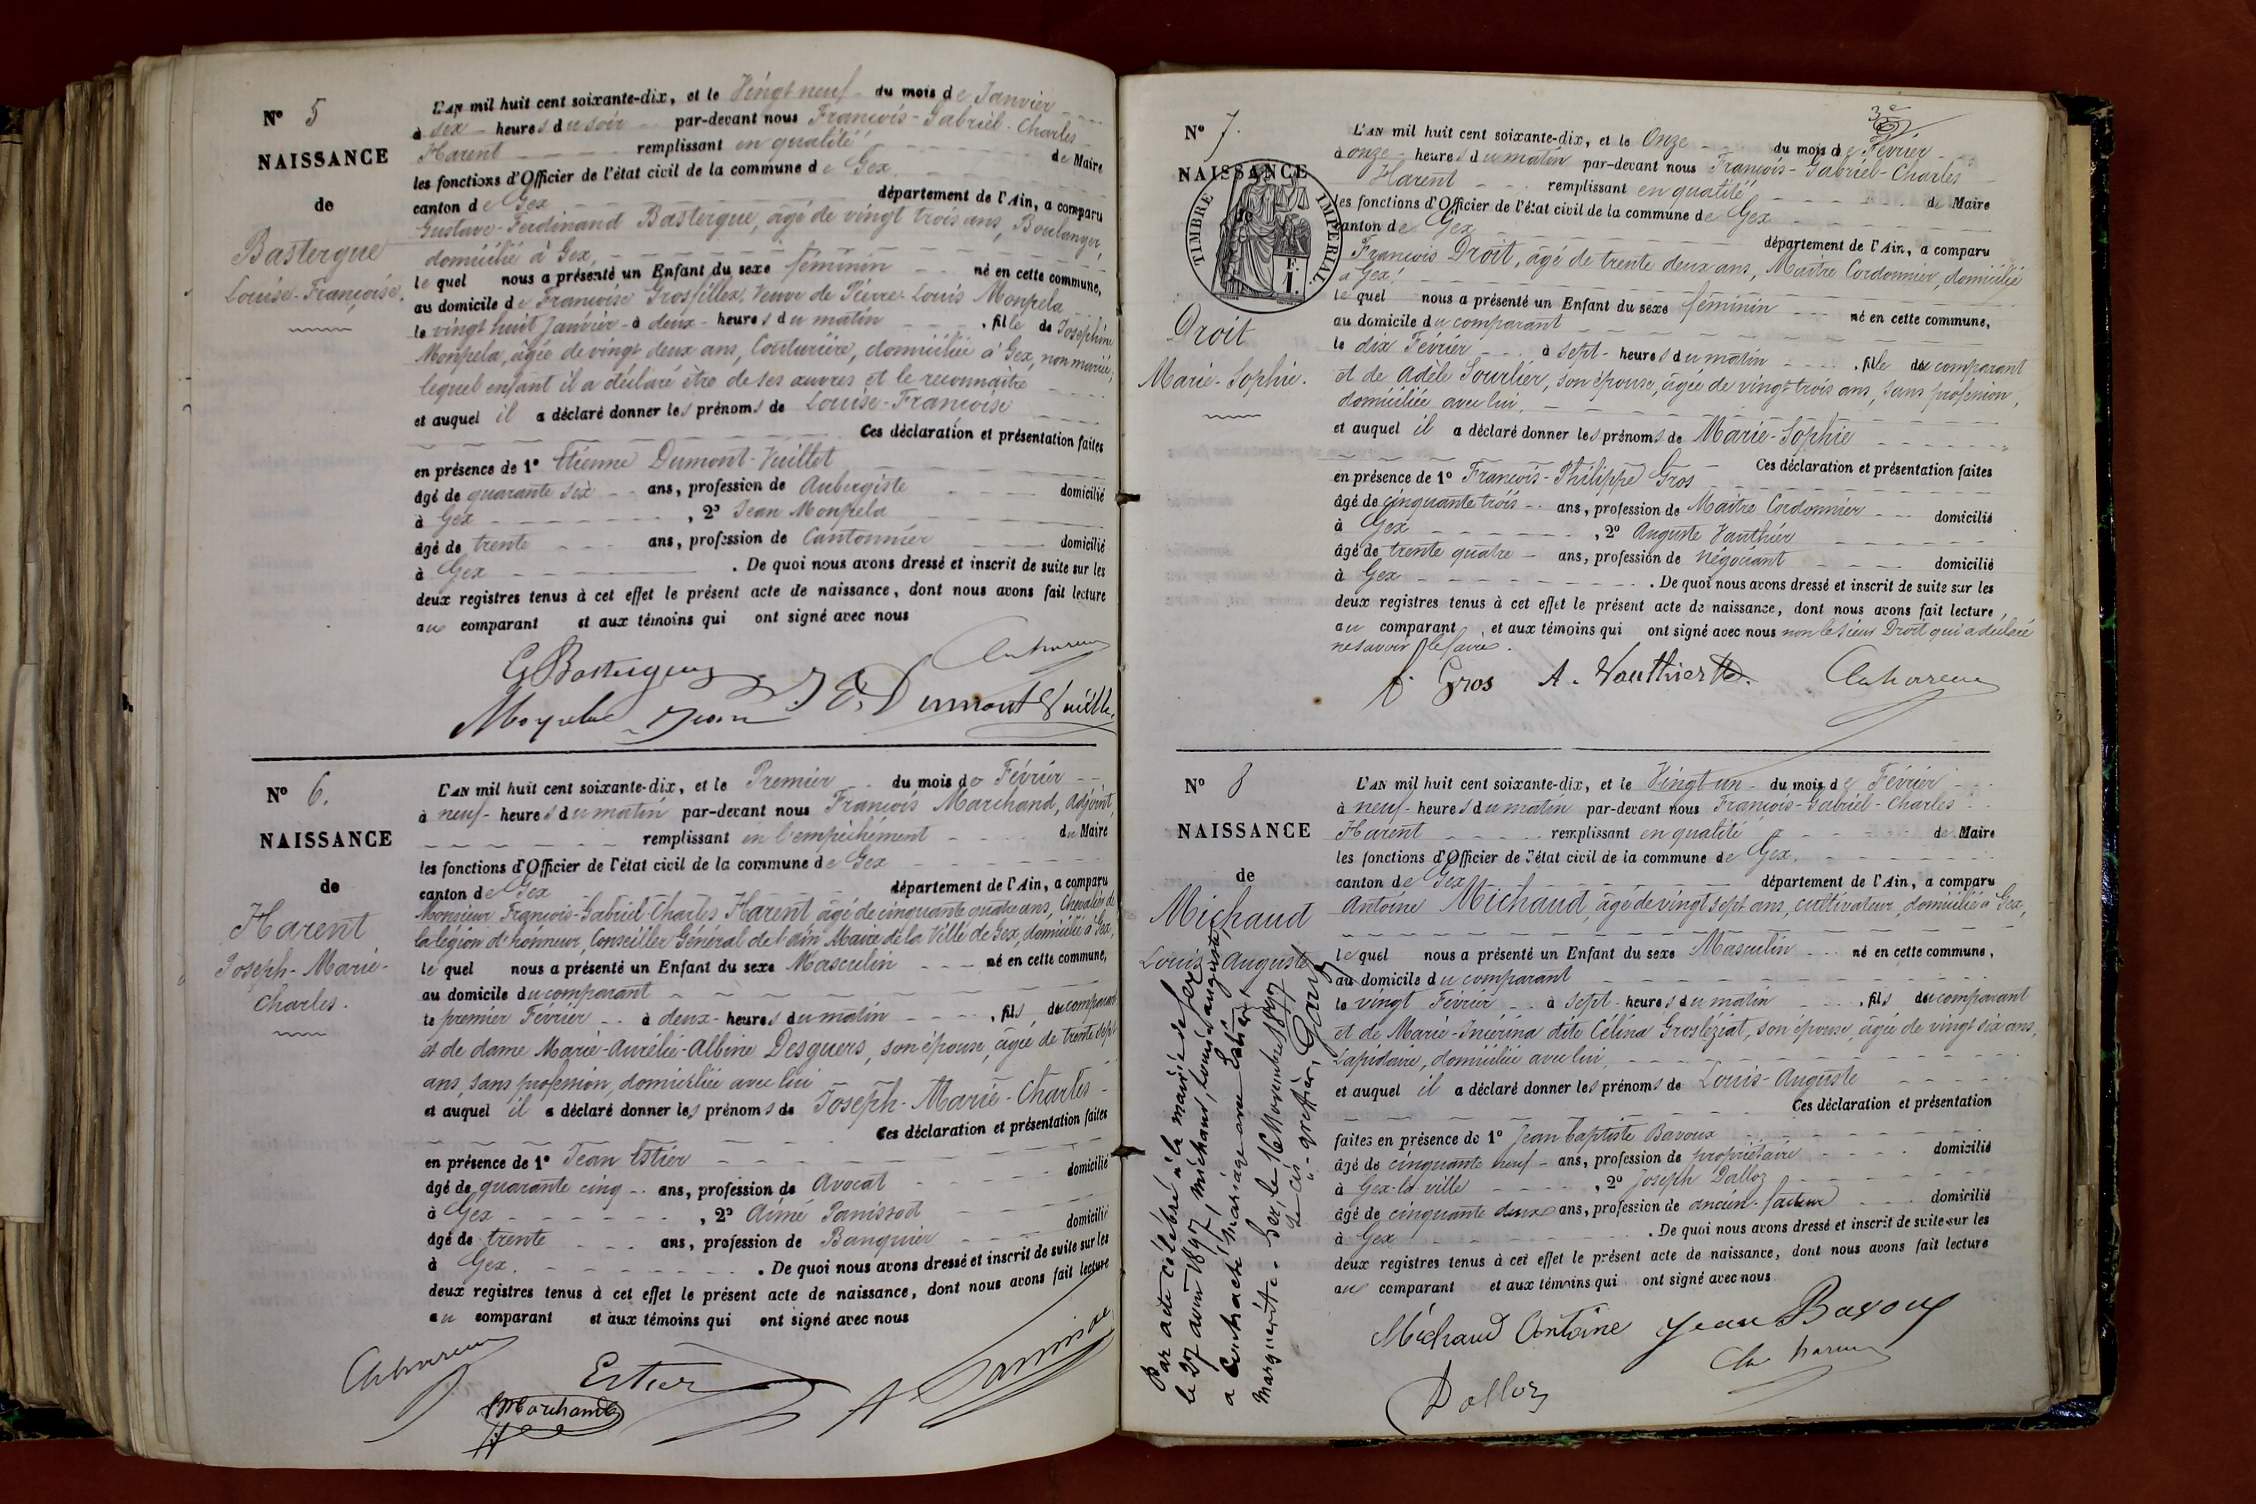 N° 5
NAISSANCE
de
Bastergue
Louise-Françoise.
L'AN mil huit cent soixante-dix, et le Vingt neuf du mois de Janvier
à six heures du soir par-devant nous François-Gabriel-Charles
Harent remplissant en qualité de Maire
les fonctions d'Officier de l'état civil de la commune de Gex
canton de Gex département de l'Ain, a comparu
Gustave-Ferdinand Bastergue, âgé de vingt trois ans, Boulanger,
domicilié à Gex,
lequel nous a présenté un Enfant du sexe féminin né en cette commune,
au domicile de Françoise Grosfillex Veuve de Pierre-Louis Monpela
le vingt huit Janvier à deux heures du matin, fille de Joséphine
Monpela, âgée de vingt deux ans, Couturière, domiciliée à Gex, non mariée;
lequel enfant il a déclaré être de ses œuvres et le reconnaître
et auquel il a déclaré donner les prénoms de Louise-Françoise
Ces déclaration et présentation faites
en présence de 1° Etienne Dumont-Vuillet
âgé de quarante six ans, profession de Aubergiste domicilié
à Gex, 2° Jean Monpela
âgé de trente ans, profession de Cantonnier domicilié
à Gex. De quoi nous avons dressé et inscrit de suite sur les
deux registres tenus à cet effet le présent acte de naissance, dont nous avons fait lecture
au comparant et aux témoins qui ont signé avec nous
G Bastergue
E. Dumont Vuillet
N° 6.
NAISSANCE
de
Harent
Joseph-Marie-
Charles.
L'AN mil huit cent soixante-dix, et le Premier du mois de Février
à neuf heures du matin par-devant nous François Marchand, Adjoint,
remplissant en l'empêchement du Maire
les fonctions d'Officier de l'état civil de la commune de Gex
canton de Gex département de l'Ain, a comparu
Monsieur François-Gabriel-Charles Harent âgé de cinquante quatre ans, Chevalier de
la légion d'honneur, Conseiller Général de l'Ain Maire de la Ville de Gex, domicilié à Gex,
lequel nous a présenté un Enfant du sexe Masculin né en cette commune,
au domicile du comparant
le premier Février à deux heures du matin, fils du comparant
et de dame Marie-Aurélie-Albine Desguers, son épouse, âgée de trente sept
ans, sans profession, domiciliée avec lui
et auquel il a déclaré donner les prénoms de Joseph-Marie-Charles
Ces déclaration et présentation faites
en présence de 1° Jean Estier
âgé de quarante cinq ans, profession de Avocat domicilié
à Gex, 2° Aimé Panissod
âgé de trente ans, profession de Banquier domicilié
à Gex. De quoi nous avons dressé et inscrit de suite sur les
deux registres tenus à cet effet le présent acte de naissance, dont nous avons fait lecture
au comparant et aux témoins qui ont signé avec nous
Estier
Marchand
N° 7.
NAISSANCE
TIMBRE IMPÉRIAL
Droit
Marie-Sophie.
L'AN mil huit cent soixante-dix, et le Onze du mois de Février
à onze heures du matin par-devant nous François-Gabriel-Charles
Harent remplissant en qualité de Maire
les fonctions d'Officier de l'état civil de la commune de Gex
canton de Gex département de l'Ain, a comparu
François Droit, âgé de trente deux ans, Maître Cordonnier, domicilié
à Gex.
lequel nous a présenté un Enfant du sexe féminin né en cette commune,
au domicile du comparant
le dix Février à sept heures du matin, fille du comparant
et de Adèle Sourlier, son épouse, âgée de vingt trois ans, sans profession,
domiciliée avec lui.
et auquel il a déclaré donner les prénoms de Marie-Sophie
Ces déclaration et présentation faites
en présence de 1° François-Philippe Gros
âgé de cinquante trois ans, profession de Maître Cordonnier domicilié
à Gex, 2° Auguste Vauthier
âgé de trente quatre ans, profession de négociant domicilié
à Gex. De quoi nous avons dressé et inscrit de suite sur les
deux registres tenus à cet effet le présent acte de naissance, dont nous avons fait lecture,
au comparant, et aux témoins qui ont signé avec nous non le sieur Droit qui a déclaré
ne savoir le faire.
Gros A. Vauthier
N° 8
NAISSANCE
de
Michaud
Louis-Auguste
L'AN mil huit cent soixante-dix, et le Vingt un du mois de Février
à neuf heures du matin par-devant nous François-Gabriel-Charles
Harent remplissant en qualité de Maire
les fonctions d'Officier de l'état civil de la commune de Gex,
canton de Gex département de l'Ain, a comparu
Antoine Michaud, âgé de vingt sept ans, cultivateur, domicilié à Gex,
lequel nous a présenté un Enfant du sexe Masculin né en cette commune,
au domicile du comparant
le vingt Février à sept heures du matin, fils du comparant
et de Marie-Inérina dite Célina Grosléziat, son épouse, âgée de vingt six ans,
Lapidaire, domiciliée avec lui
et auquel il a déclaré donner les prénoms de Louis-Auguste
Ces déclaration et présentation
faites en présence de 1° Jean baptiste Bavoux
âgé de cinquante neuf ans, profession de propriétaire domicilié
à Gex-la-ville, 2° Joseph Dalloz
âgé de cinquante deux ans, profession de ancien facteur domicilié
à Gex. De quoi nous avons dressé et inscrit de suite sur les
deux registres tenus à cet effet le présent acte de naissance, dont nous avons fait lecture
au comparant et aux témoins qui ont signé avec nous
Michaud Antoine Jean Bavoux
Dalloz
Par acte célébré à la mairie de Gex
le 27 avril 1897, Michaud, Louis Auguste
a contracté mariage avec
Marguerite. Gex, le 16 Novembre 1897
le cis-greffier,